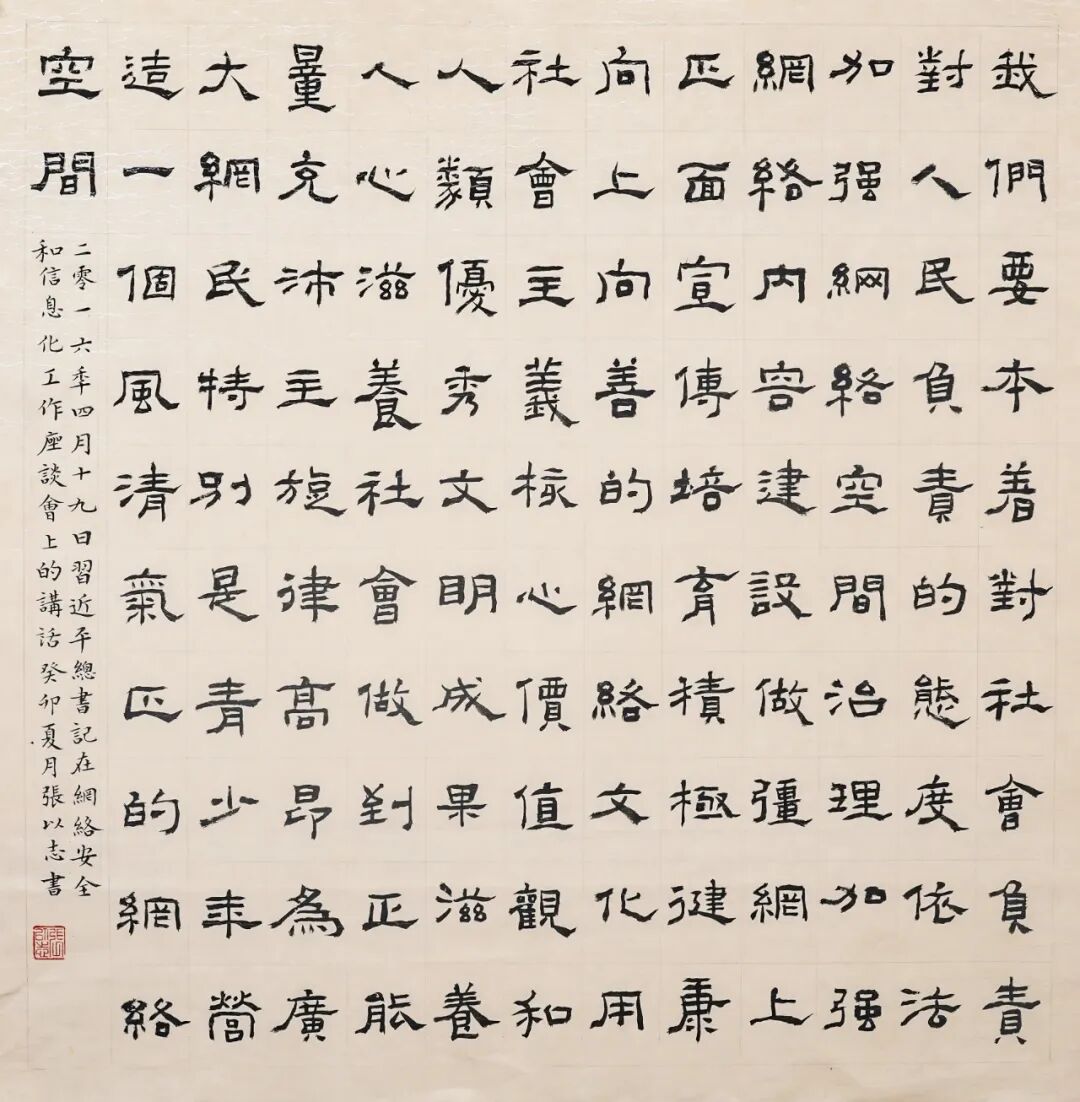 我們要本着對社會負責
對人民負責的態度依法
加强網絡空間治理加强
網絡内容建設做彊網上
正面宣傳培育積極健康
向上向善的網絡文化用
社會主義核心價值觀和
人類優秀文明成果滋養
人心滋養社會做到正能
量充沛主旋律高昂為廣
大網民特别是青少年營
造一個風清氣正的網絡
空間
二零一六年四月十九日習近平總書記在網絡安全
和信息化工作座談會上的講話癸卯夏月張以志書